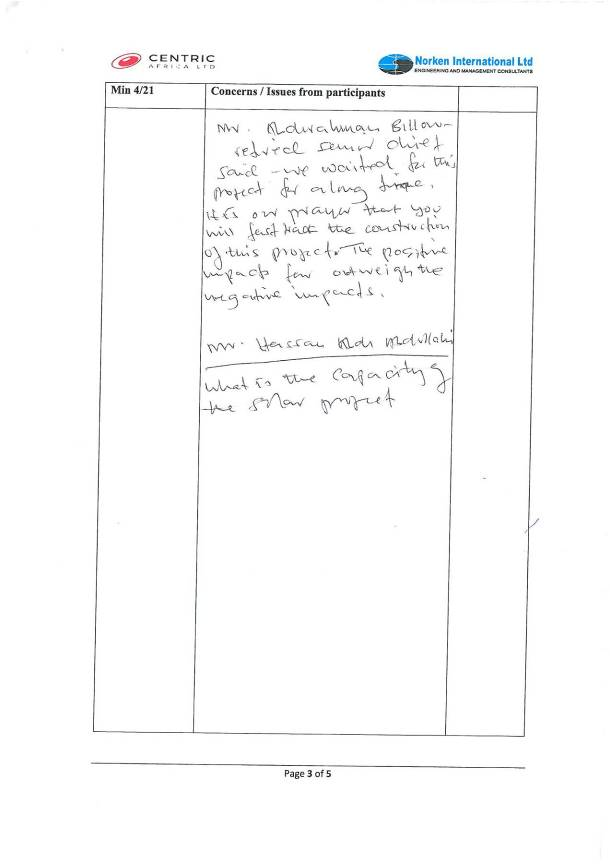 CENTRIC
AFRICA LTD
Norken International Ltd
ENGINEERING AND MANAGEMENT CONSULTANTS
Min 4/21
Concerns / Issues from participants
Mr. Abdirahman Billow-
retired senior chief
said - we waited for this
project for a long time.
it is our prayer that you
will fast track the construction
of this project. The positive
impacts far outweigh the
negative impacts.
Mr. Hassan Abdi Abdullahi
What is the capacity of
the solar project
Page 3 of 5